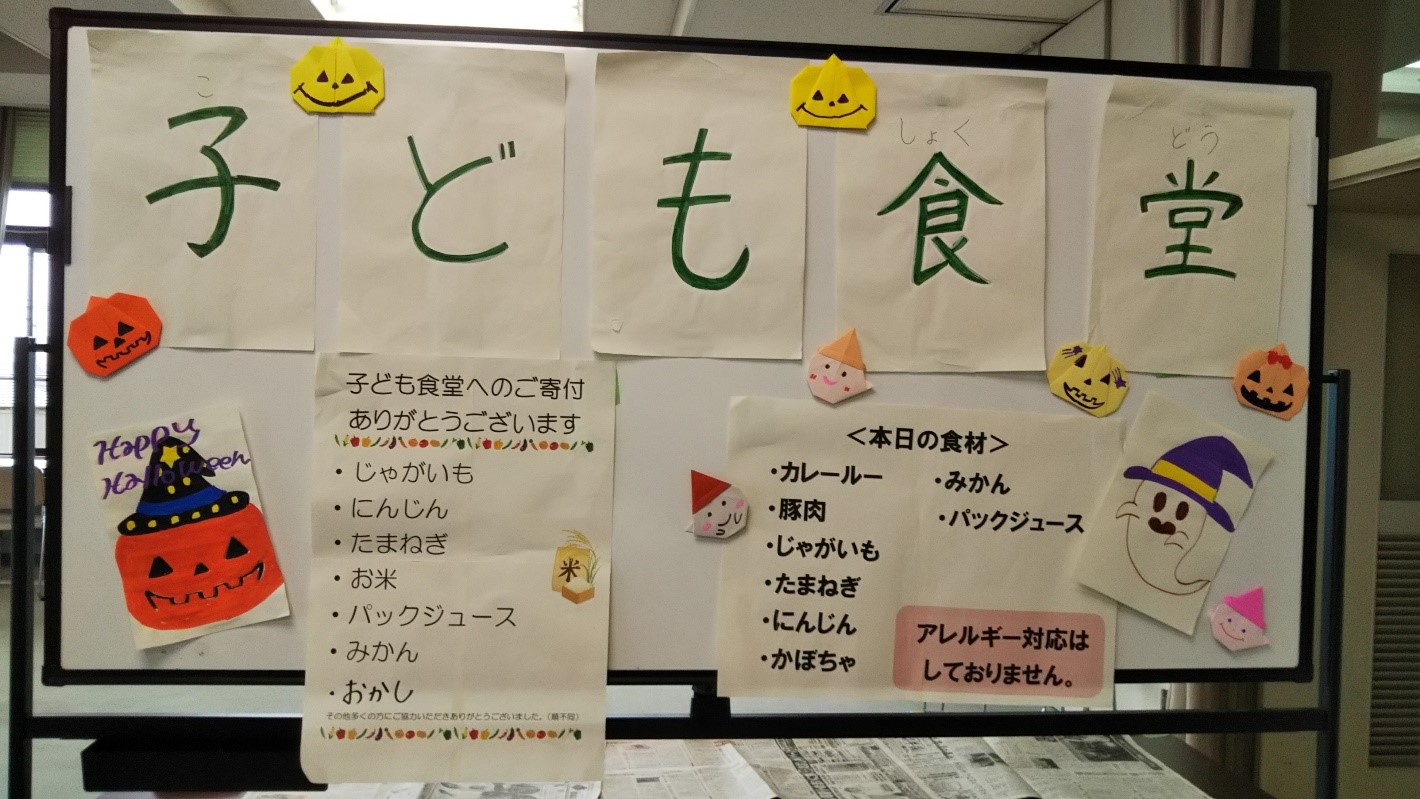 こ しょく どう
子ども食堂
Happy
Halloween
子ども食堂へのご寄付
ありがとうございます
・じゃがいも
・にんじん
・たまねぎ
・お米
・パックジュース
・みかん
・おかし
米
その他多くの方にご協力いただきありがとうございました。(順不同)
<本日の食材>
・カレールー
・豚肉
・じゃがいも
・たまねぎ
・にんじん
・かぼちゃ
・みかん
・パックジュース
アレルギー対応は
しておりません。